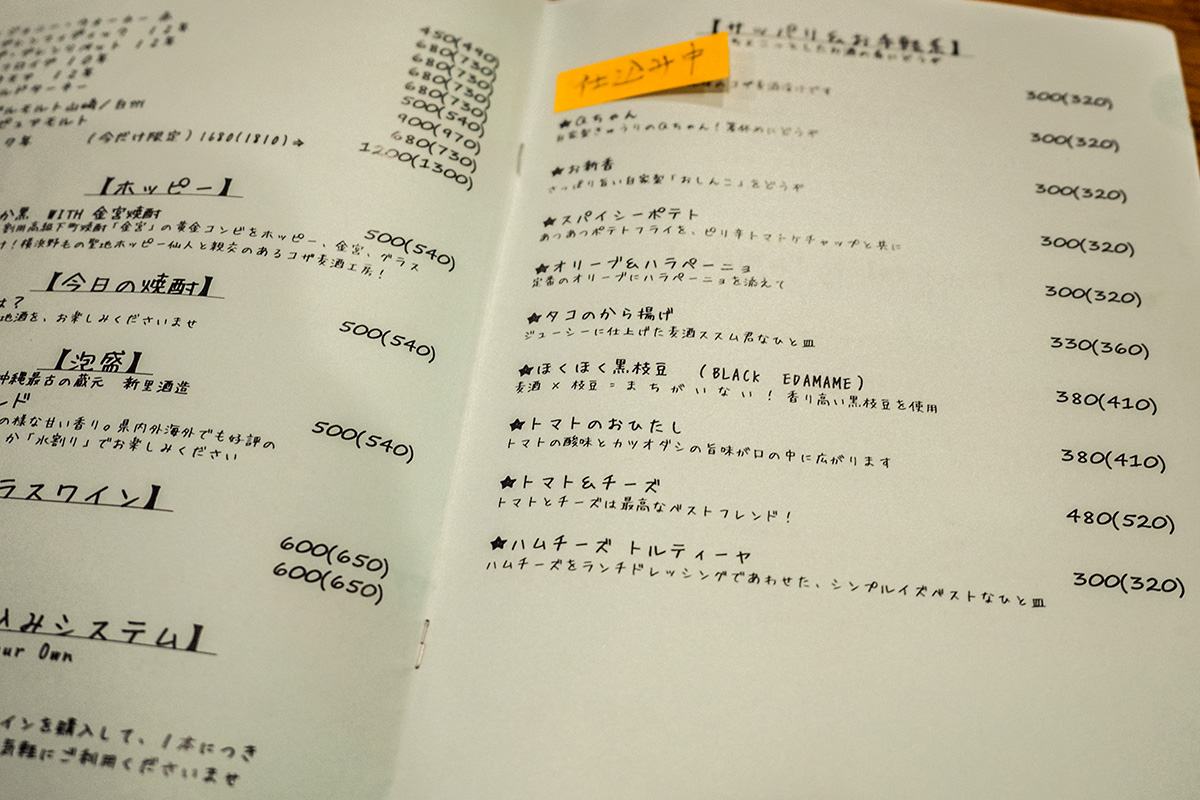 12年
12年
10年
12年
モルト山崎/白州
ピュアモルト
(今だけ限定)1680(1810)⇒
450(490)
680(730)
680(730)
680(730)
680(730)
500(540)
900(970)
680(730)
1200(1300)
【ホッピー】
か黒 WITH 金宮焼酎
割用高級下町焼酎「金宮」の黄金コンビをホッピー、金宮、グラス
け!横浜野毛の聖地ホッピー仙人と親交のあるコザ麦酒工房!
500(540)
【今日の焼酎】
は?
地酒を、お楽しみくださいませ
500(540)
【泡盛】
沖縄最古の蔵元 新里酒造
ンド
の様な甘い香り。県内外海外でも好評の
か「水割り」でお楽しみください
500(540)
ラスワイン】
600(650)
600(650)
込みシステム】
our Own
インを購入して、1本につき
気軽にご利用くださいませ
【サッパリ&お手軽系】
ちょこっとしたお酒のあいどうぞ
仕込み中
のコザ麦酒漬けです
300(320)
★Qちゃん
自家製きゅうりのQちゃん!箸休めにどうぞ
300(320)
★お新香
さっぱり旨い自家製「おしんこ」をどうぞ
300(320)
★スパイシーポテト
あつあつポテトフライを、ピリ辛トマトケチャップと共に
300(320)
★オリーブ&ハラペーニョ
定番のオリーブにハラペーニョを添えて
300(320)
★タコのから揚げ
ジューシーに仕上げた麦酒ススム君なひと皿
330(360)
★ほくほく黒枝豆 (BLACK EDAMAME)
麦酒×枝豆=まちがいない!香り高い黒枝豆を使用
380(410)
★トマトのおひたし
トマトの酸味とカツオダシの旨味が口の中に広がります
380(410)
★トマト&チーズ
トマトとチーズは最高なベストフレンド!
480(520)
★ハムチーズ トルティーヤ
ハムチーズをランチドレッシングであわせた、シンプルイズベストなひと皿
300(320)